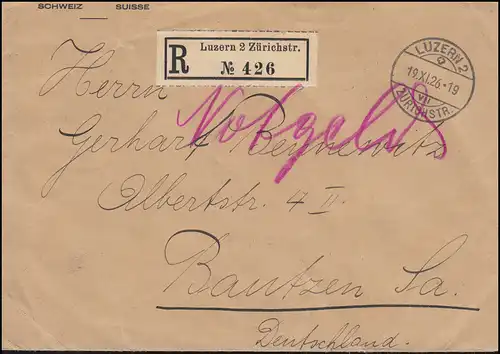 SCHWEIZ SUISSE
R Luzern 2 Zürichstr.
№ 426
LUZERN 2
19.XI.26-19
VII
ZÜRICHSTR.
Herrn
Notgeld
Gerhart
Albertstr. 4 II.
Bautzen Sa.
Deutschland.